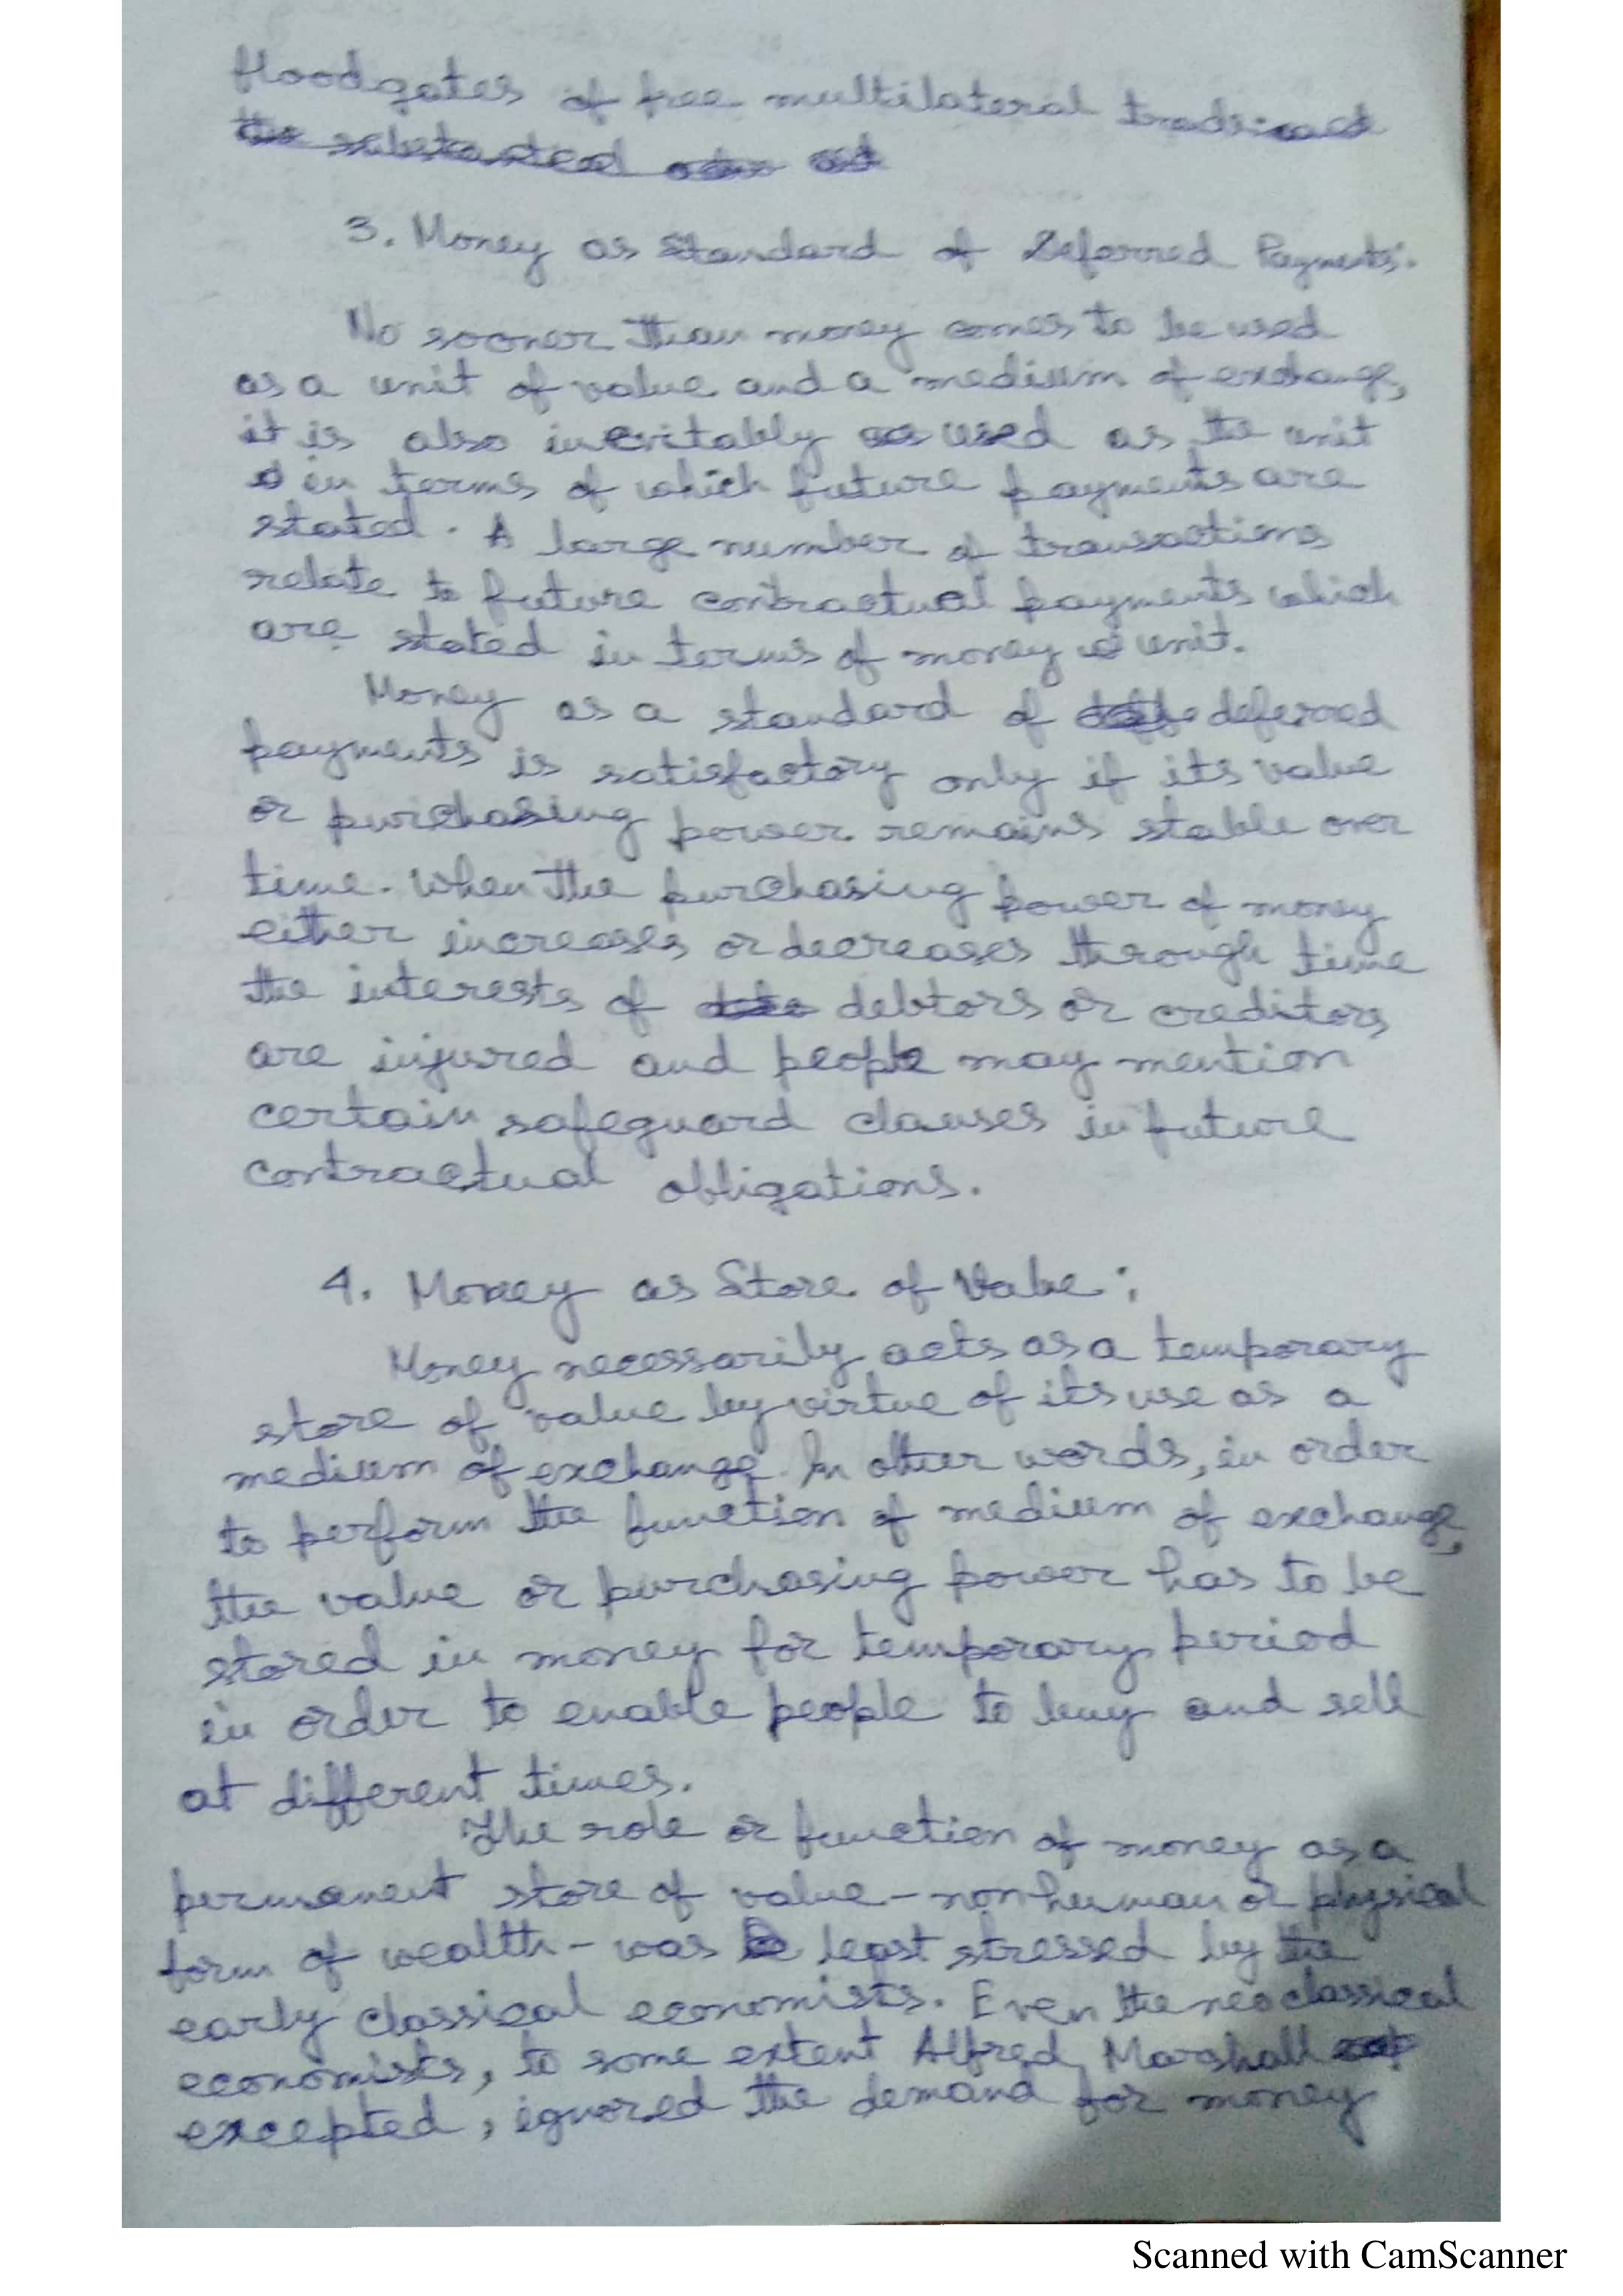 floodgates of free multilateral trade
3. Money as Standard of Deferred Payments:
No sooner than money comes to be used
as a unit of value and a medium of exchange,
it is also inevitably used as the unit
in terms of which future payments are
stated. A large number of transactions
relate to future contractual payments which
are stated in terms of money unit.
Money as a standard of deferred
payments is satisfactory only if its value
or purchasing power remains stable over
time. When the purchasing power of money
either increases or decreases through time
the interests of debtors or creditors
are injured and people may mention
certain safeguard clauses in future
contractual obligations.
4. Money as Store of Value:
Money necessarily acts as a temporary
store of value by virtue of its use as a
medium of exchange. In other words, in order
to perform the function of medium of exchange,
the value or purchasing power has to be
stored in money for temporary period
in order to enable people to buy and sell
at different times.
The role or function of money as a
permanent store of value - nonhuman or physical
form of wealth - was least stressed by the
early classical economists. Even the neoclassical
economists, to some extent Alfred Marshall
excepted, ignored the demand for money
Scanned with CamScanner